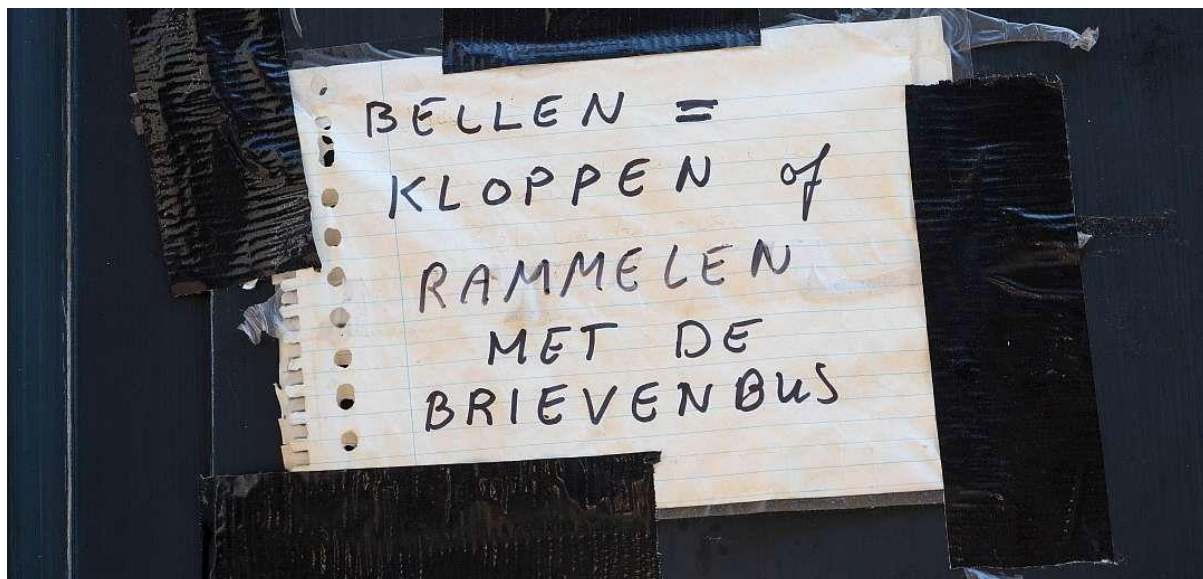 BELLEN =
KLOPPEN of
RAMMELEN
MET DE
BRIEVENBUS